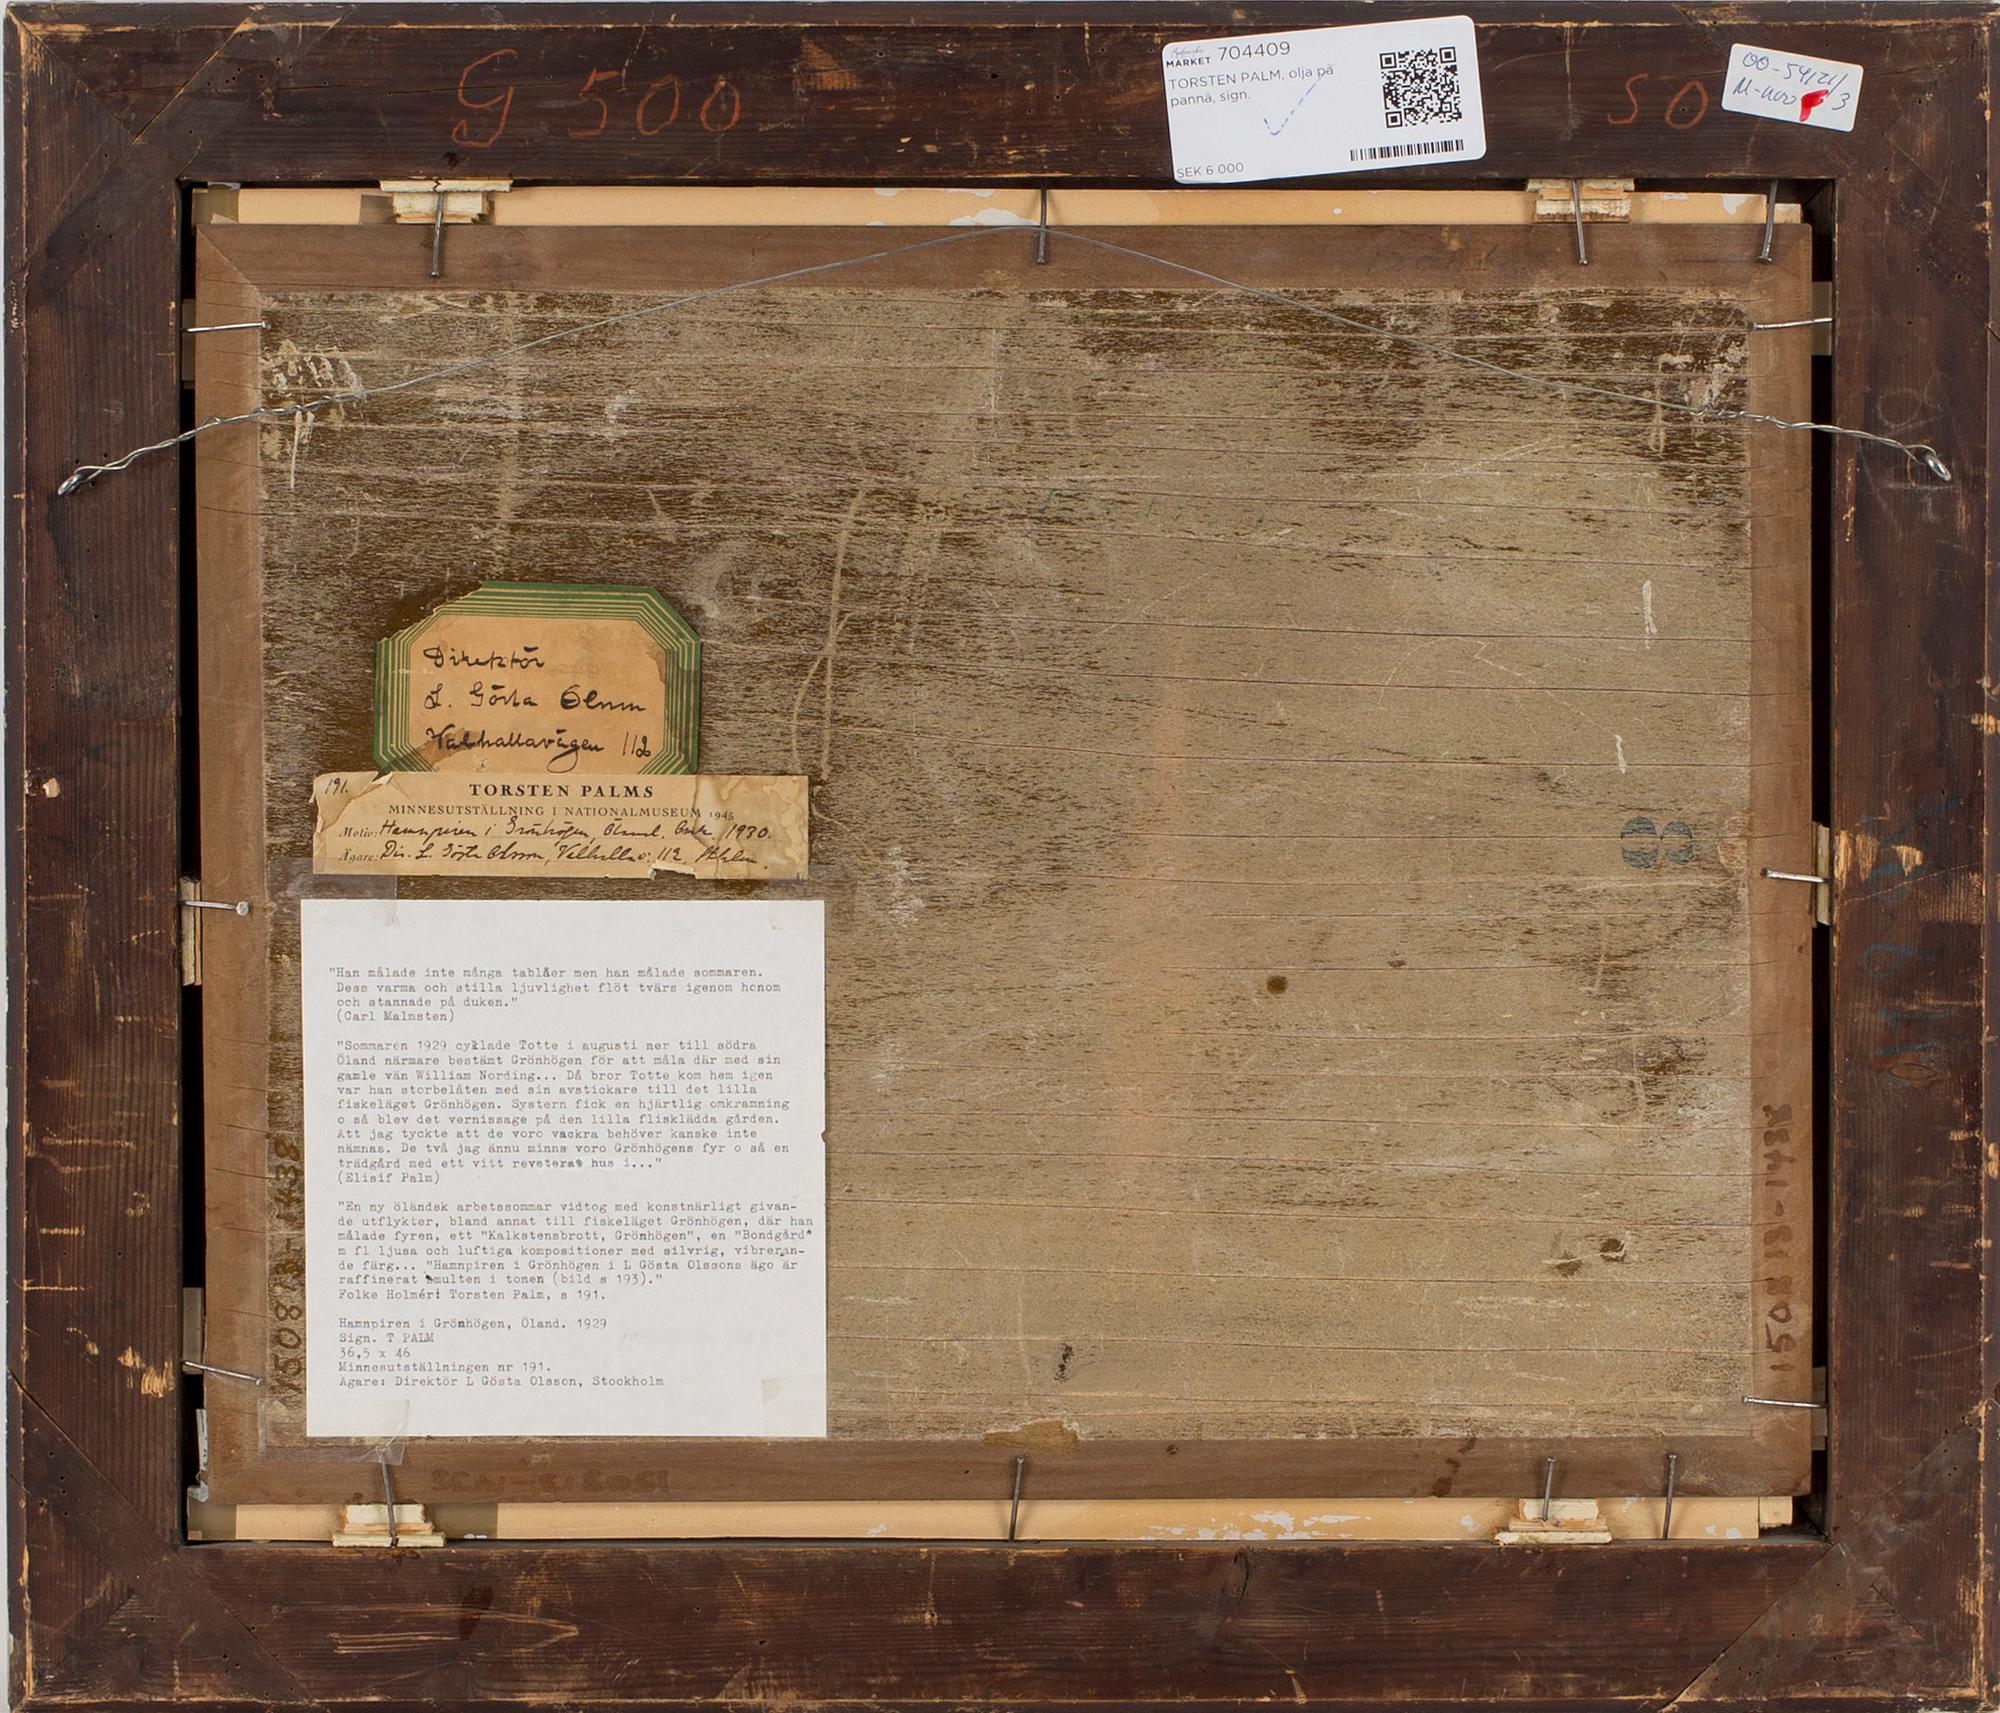 G 500
MARKET 704409
TORSTEN PALM, olja på
pannå, sign.
SEK 6 000
50
Direktör
L. Gösta Olsson
Valhallavägen 112
191.
TORSTEN PALMS
MINNESUTSTÄLLNING I NATIONALMUSEUM 1945
Motiv: Hamnpiren i Grönhögen, Öland, 1930.
Ägare: Dir. L. Gösta Olsson, Valhallav. 112, Sthlm.
"Han målade inte många tablåer men han målade sommaren.
Dess varma och stilla ljuvlighet flöt tvärs igenom honom
och stannade på duken."
(Carl Malmsten)
"Sommaren 1929 cyklade Totte i augusti ner till södra
Öland närmare bestämt Grönhögen för att måla där med sin
gamle vän William Nording... Då bror Totte kom hem igen
var han storbelåten med sin avstickare till det lilla
fiskeläget Grönhögen. Systern fick en hjärtlig omkramning
o så blev det vernissage på den lilla flisklädda gården.
Att jag tyckte att de voro vackra behöver kanske inte
nämnas. De två jag ännu minns voro Grönhögens fyr o så en
trädgård med ett vitt reveterat hus i..."
(Elisif Palm)
"En ny öländsk arbetssommar vidtog med konstnärligt givan-
de utflykter, bland annat till fiskeläget Grönhögen, där han
målade fyren, ett "Kalkstensbrott, Grönhögen", en "Bondgård"
m fl ljusa och luftiga kompositioner med silvrig, vibreran-
de färg... "Hamnpiren i Grönhögen i L Gösta Olssons ägo är
raffinerat smulten i tonen (bild s 193)."
Folke Holmér: Torsten Palm, s 191.
Hamnpiren i Grönhögen, Öland. 1929
Sign. T PALM
36,5 x 46
Minnesutställningen nr 191.
Ägare: Direktör L Gösta Olsson, Stockholm